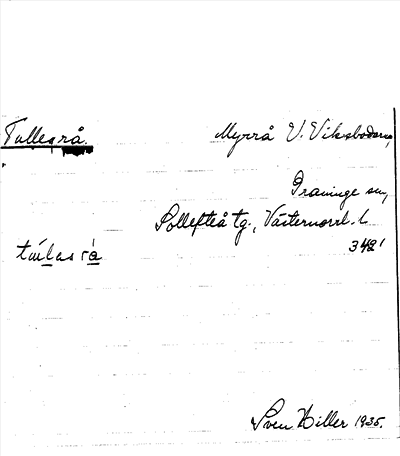 Tullesrå. Myrrå V. Viksbodarna,
Graninge sn,
Sollefteå tg., Västernorrl. l.
tώlas rå 342'
Sven Hiller 1935.